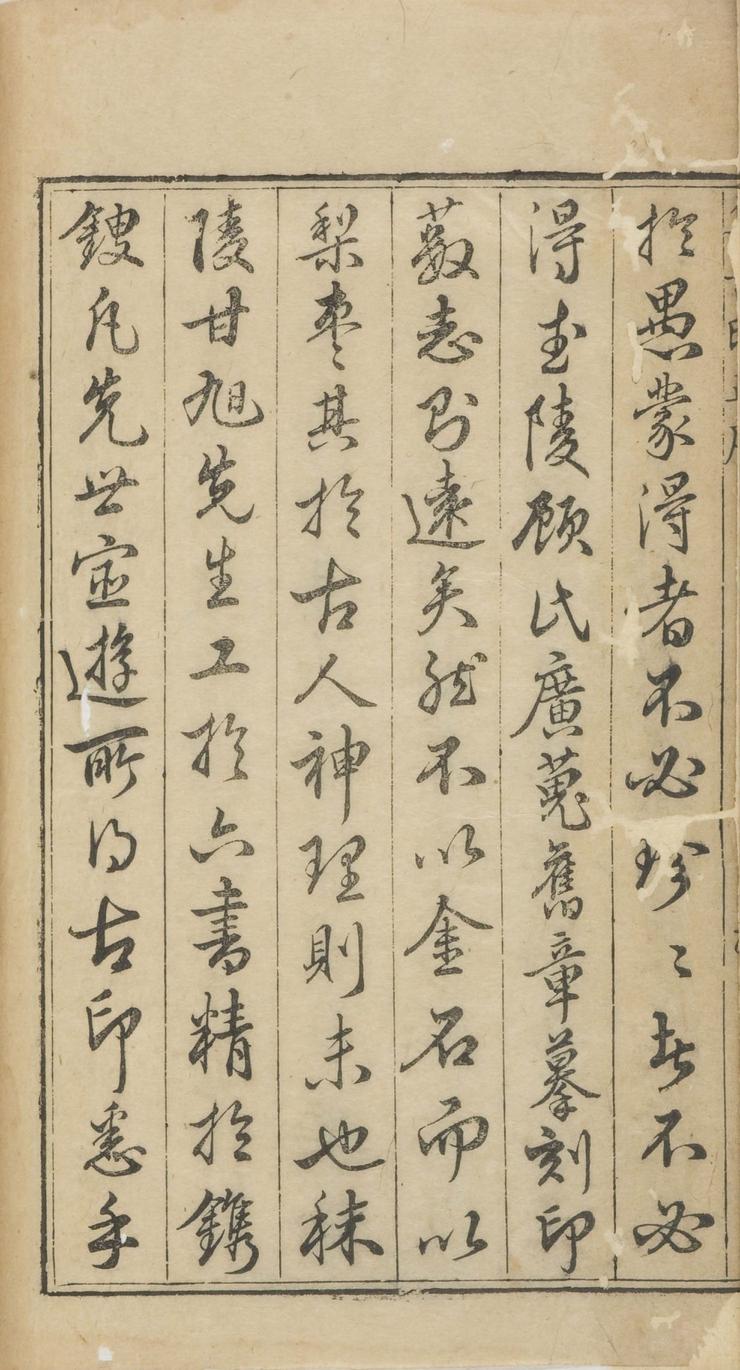 扵愚蒙得者不必珍〻者不必
得武陵顧氏廣蒐舊章摹刻印
藪志則遠矣然不以金石而以
梨枣其扵古人神理則未也秣
陵甘旭先生工扵六書精扵鐫
鍥凡先世宦遊所得古印悉手